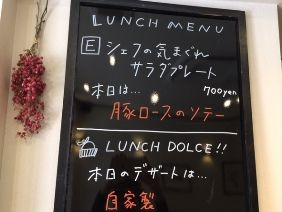 LUNCH MENU
E シェフの気まぐれ
サラダプレート
本日は... 700yen
豚ロースのソテー
LUNCH DOLCE!!
本日のデザートは...
自家製